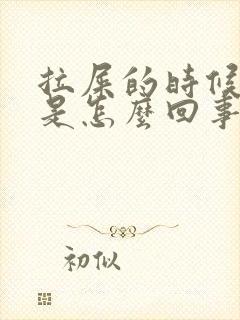 拉屎的時候
是怎麼回事
初似